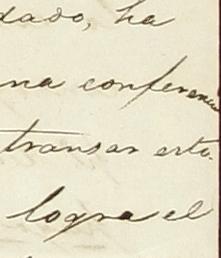 dado, ha
na conferencia
transar esta
logra el